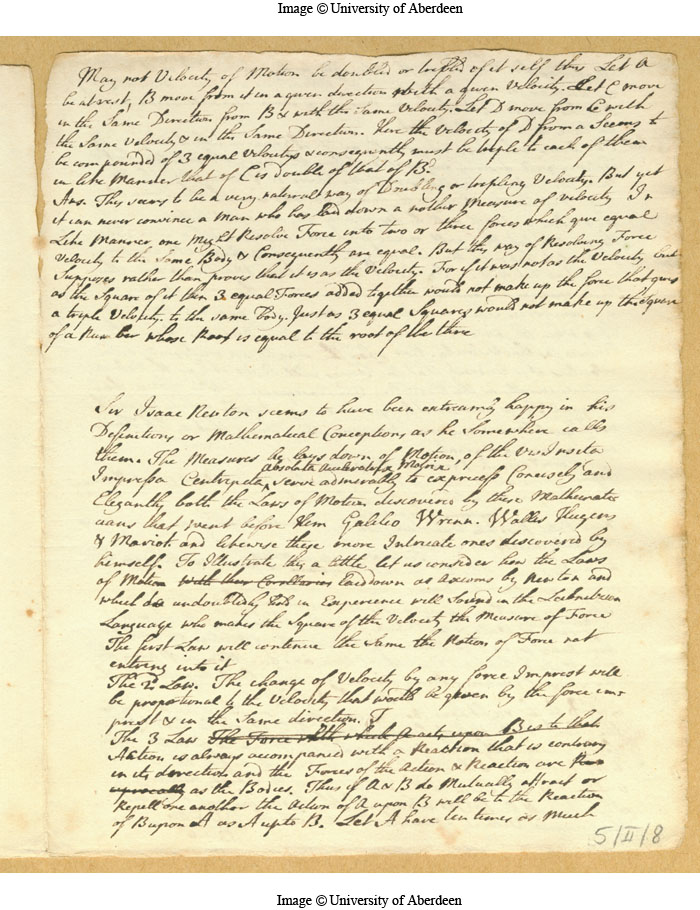 Image © University of Aberdeen
May not Velocity of Motion be doubled or tripled of it self thus Let A
be at rest, B move from it in a given direction with a given Velocity. Let C move
in the Same Direction from B & with the Same Velocity. Let D move from C with
the Same Velocity & in the Same Direction. Here the Velocity of D from A Seems to
be compounded of 3 equal Velocitys & consequently must be triple to each of them
in like Manner that of C is double of that of B.
Ans. This seems to be a very natural way of Doubling or tripling Velocity. But yet
it can never convince a Man who has laid down a nother Measure of velocity In
Like Manner, one Might Resolve Force into two or three forces which give equal
Velocity to the Same Body & Consequently are equal. But this way of Resolving Force
Supposes rather than proves that it is as the Velocity. For if it was not as the Velocity but
as the Square of it then 3 equal Forces added together would not make up the force that gives
a triple Velocity to the same body. Just as 3 equal Squares would not make up the Square
of a Number whose Root is equal to the root of the three
Sir Isaac Newton seems to have been extreamly happy in his
Definitions or Mathematical Conceptions as he Somewhere calls
them. The Measures he lays down of Motion, of the Vis Insita
absoluta Acceleratrix & Motrix
Impressa Centripeta, serve admirably to express Concisely and
Elegantly both the Laws of Motion discovered by these Mathematic
ians that went before Him Galileo Wrenn. Wallis Hugens
& Mariot. and likewise these more Intricate ones discovered by
himself. To Illustrate this a little let us consider how the Laws
of Motion with their Corollaries laid down as Axioms by Newton and
which do undoubtedly hold in Experience will Sound in the Leibnitzian
Language who makes the Square of the Velocity the Measure of Force
The first Law will continue the Same the Notion of Force not
entring into it
The 2d Law. The change of Velocity by any force Imprest will
be proportional to the Velocity that would be given by the force im
prest & in the Same direction. T
The 3 Law The Force with which A acts upon B is to that
Action is always accompanied with a Reaction that is contrary
in its direction and the Forces of the Action & Reaction are
as the Bodies. Thus if A & B do Mutually attract or
Repell one another the Action of A upon B will be to the Reaction
of B upon A as A is to B. Let A have ten times as Much
5/II/8
Image © University of Aberdeen